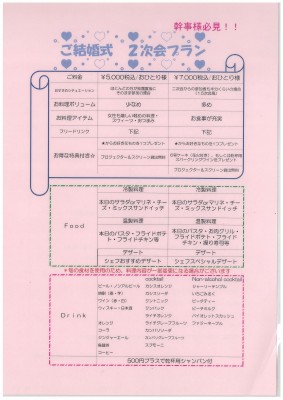 幹事様必見！！
ご結婚式　２次会プラン
ご料金
¥5,000税込/おひとり様
¥7,000税込/おひとり様
お料理ボリューム
少なめ
多め
お料理アイテム
お食事が充実
フリードリンク
下記
下記
お得な特典付き☆
プロジェクター＆スクリーン貸出無料
プロジェクター＆スクリーン貸出無料
Food
冷製料理
冷製料理
本日のサラダorマリネ・チーズ・ミックスサンドイッチ
本日のサラダorマリネ・チーズ・ミックスサンドイッチ
温製料理
温製料理
本日のパスタ・フライドポテト・フライドチキン等
本日のパスタ・お肉グリル・フライドポテト・フライドチキン・握り寿司等
デザート
デザート
シェフおすすめデザート
シェフスペシャルデザート
＊旬の食材を使用のため、料理内容が一部変更になる場合がございます
Drink
cocktail
Non-alcohol cocktail
ビール・ノンアルビール
カシスオレンジ
シャーリーテンプル
カシスソーダ
ジントニック
ピーチティー
ウィスキー・日本酒
ジンライム
ピーチミルク
ライチオレンジ
オレンジ
ライチグレープフルーツ
コーラ
カンパリソーダ
ジンジャーエール
カンパリグレープフルーツ
烏龍茶
スプモーニ
コーヒー
500円プラスで乾杯用シャンパン付